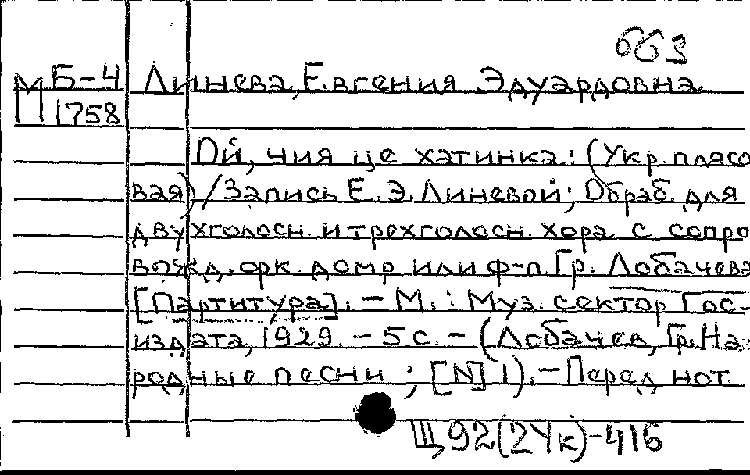 663
М Б-4 Линева, Евгения Эдуардовна
П 1758
Ой, чия це хатинка: (Укр. плясо
вая) / Запись Е. Э. Линевой; Обраб. для
двухголосн. и трехголосн. хора с сопро
вожд. орк. домр или ф-п. Гр. Лобачева
[Партитура]. - М.: Муз. сектор Гос-
издата, 1929. - 5 с. - (Лобачев, Гр. На-
родные песни; [N] 1). - Перед нот.
Щ92(2Ук)-416